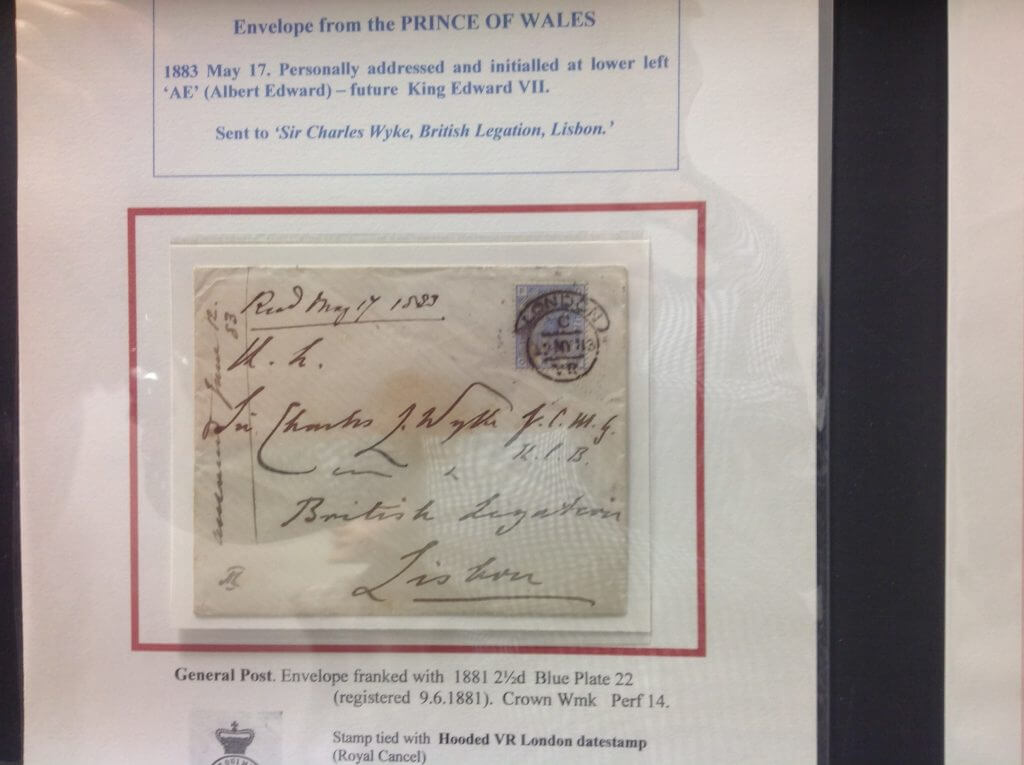 Envelope from the PRINCE OF WALES
1883 May 17. Personally addressed and initialled at lower left
‘AE’ (Albert Edward) – future King Edward VII.
Sent to ‘Sir Charles Wyke, British Legation, Lisbon.’
Recd May 17 1883
LONDON
C
MY
VR
Sir Charles J. Wyke G.C.M.G.
K.C.B.
British Legation
Lisbon
General Post. Envelope franked with 1881 2½d Blue Plate 22
(registered 9.6.1881). Crown Wmk Perf 14.
Stamp tied with Hooded VR London datestamp
(Royal Cancel)